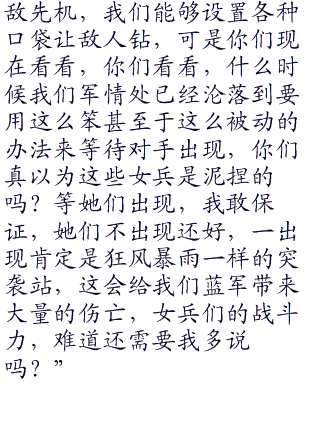 敌先机，我们能够设置各种
口袋让敌人钻，可是你们现
在看看，你们看看，什么时
候我们军情处已经沦落到要
用这么笨甚至于这么被动的
办法来等待对手出现，你们
真以为这些女兵是泥捏的
吗？等她们出现，我敢保
证，她们不出现还好，一出
现肯定是狂风暴雨一样的突
袭站，这会给我们蓝军带来
大量的伤亡，女兵们的战斗
力，难道还需要我多说
吗？”